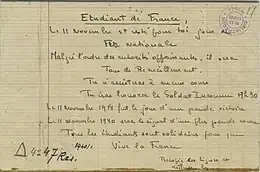 Etudiant de France,
Le 11 Novembre est resté pour toi jour de
Fête nationale
Malgré l'ordre des autorités opprimantes, il sera
Jour de Recueillement
Tu n'assisteras à aucun cours
Tu iras honorer le Soldat Inconnu 17h30
Le 11 Novembre 1918 fut le jour d'une grande victoire
Le 11 Novembre 1940 sera le signal d'une plus grande encore
Tous les étudiants sont solidaires pour que
Vive la France
1940/1
47
Rés.
Recopie ces lignes et